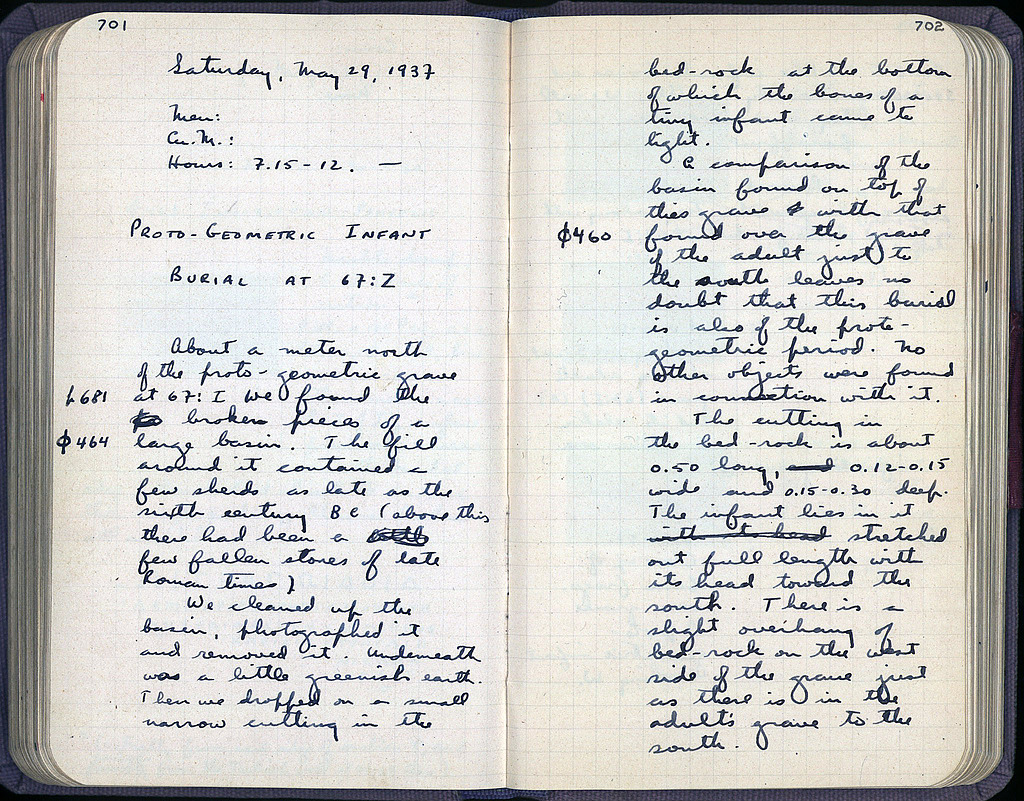 701
Saturday, May 29, 1937
Men:
Cu. M.:
Hours: 7.15-12. —
PROTO-GEOMETRIC INFANT
BURIAL AT 67:Z
About a meter north
of the proto-geometric grave
L681 at 67:I we found the
broken pieces of a
φ464 large basin. The fill
around it contained a
few sherds as late as the
sixth century BC (above this
there had been a
few fallen stones of late
Roman times)
We cleaned up the
basin, photographed it
and removed it. Underneath
was a little greenish earth.
Then we dropped on a small
narrow cutting in the
702
bed-rock at the bottom
of which the bones of a
tiny infant came to
light.
A comparison of the
basin found on top of
this grave with that
φ460 found over the grave
of the adult just to
the south leaves no
doubt that this burial
is also of the proto-
geometric period. No
other objects were found
in connection with it.
The cutting in
the bed-rock is about
0.50 long, and 0.12-0.15
wide and 0.15-0.30 deep.
The infant lies in it
with its head stretched
out full length with
its head toward the
south. There is a
slight overhang of
bed-rock on the west
side of the grave just
as there is in the
adult's grave to the
south.